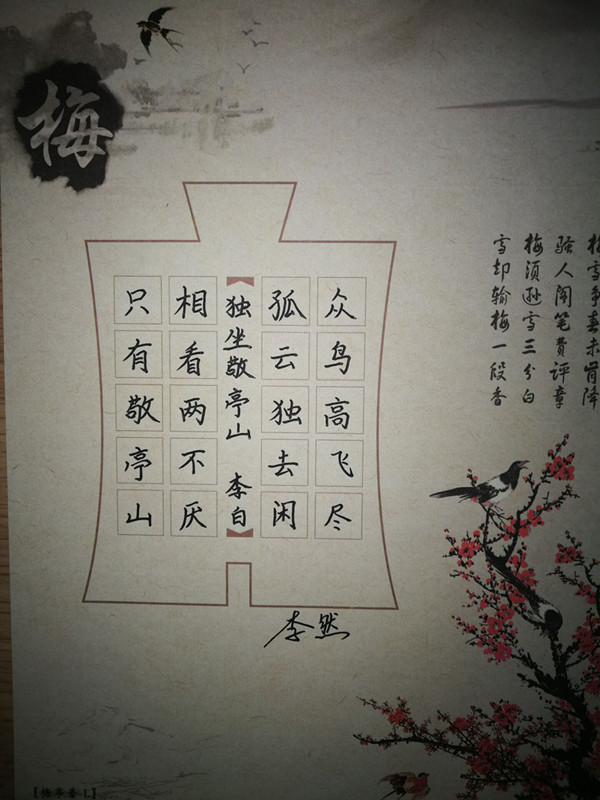 梅
梅雪争春未肯降
骚人阁笔费评章
梅须逊雪三分白
雪却输梅一段香
众鸟高飞尽
孤云独去闲
独坐敬亭山 李白
相看两不厌
只有敬亭山
李然